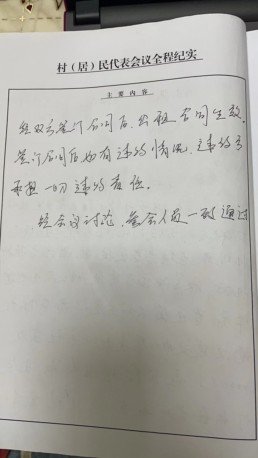 村（居）民代表会议全程纪实
主要内容
经双方签订合同后，出租合同生效。
签订合同后如有违约情况，违约方
承担一切违约责任。
经会议讨论，参会人员一致通过